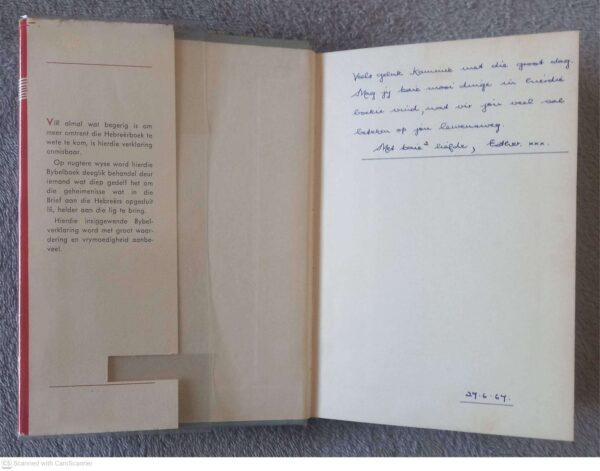 Vill almal wat begerig is om
meer omtrent die Hebreërboek te
wete te kom, is hierdie verklaring
onmisbaar.
Op nugtere wyse word hierdie
Bybelboek deeglik behandel deur
iemand wat diep gedelf het om
die geheimenisse wat in die
Brief aan die Hebreërs opgesluit
lê, helder aan die lig te bring.
Hierdie insiggewende Bybel-
verklaring word met groot waar-
dering en vrymoedigheid aanbe-
veel.
Veels geluk Kammie met die groot dag.
Mag jy baie mooi dinge in hierdie
boekie vind, wat vir jou veel sal
beteken op jou lewensweg.
Met baie² liefde, Esther. xxx.
27.6.67.
CS Scanned with CamScanner